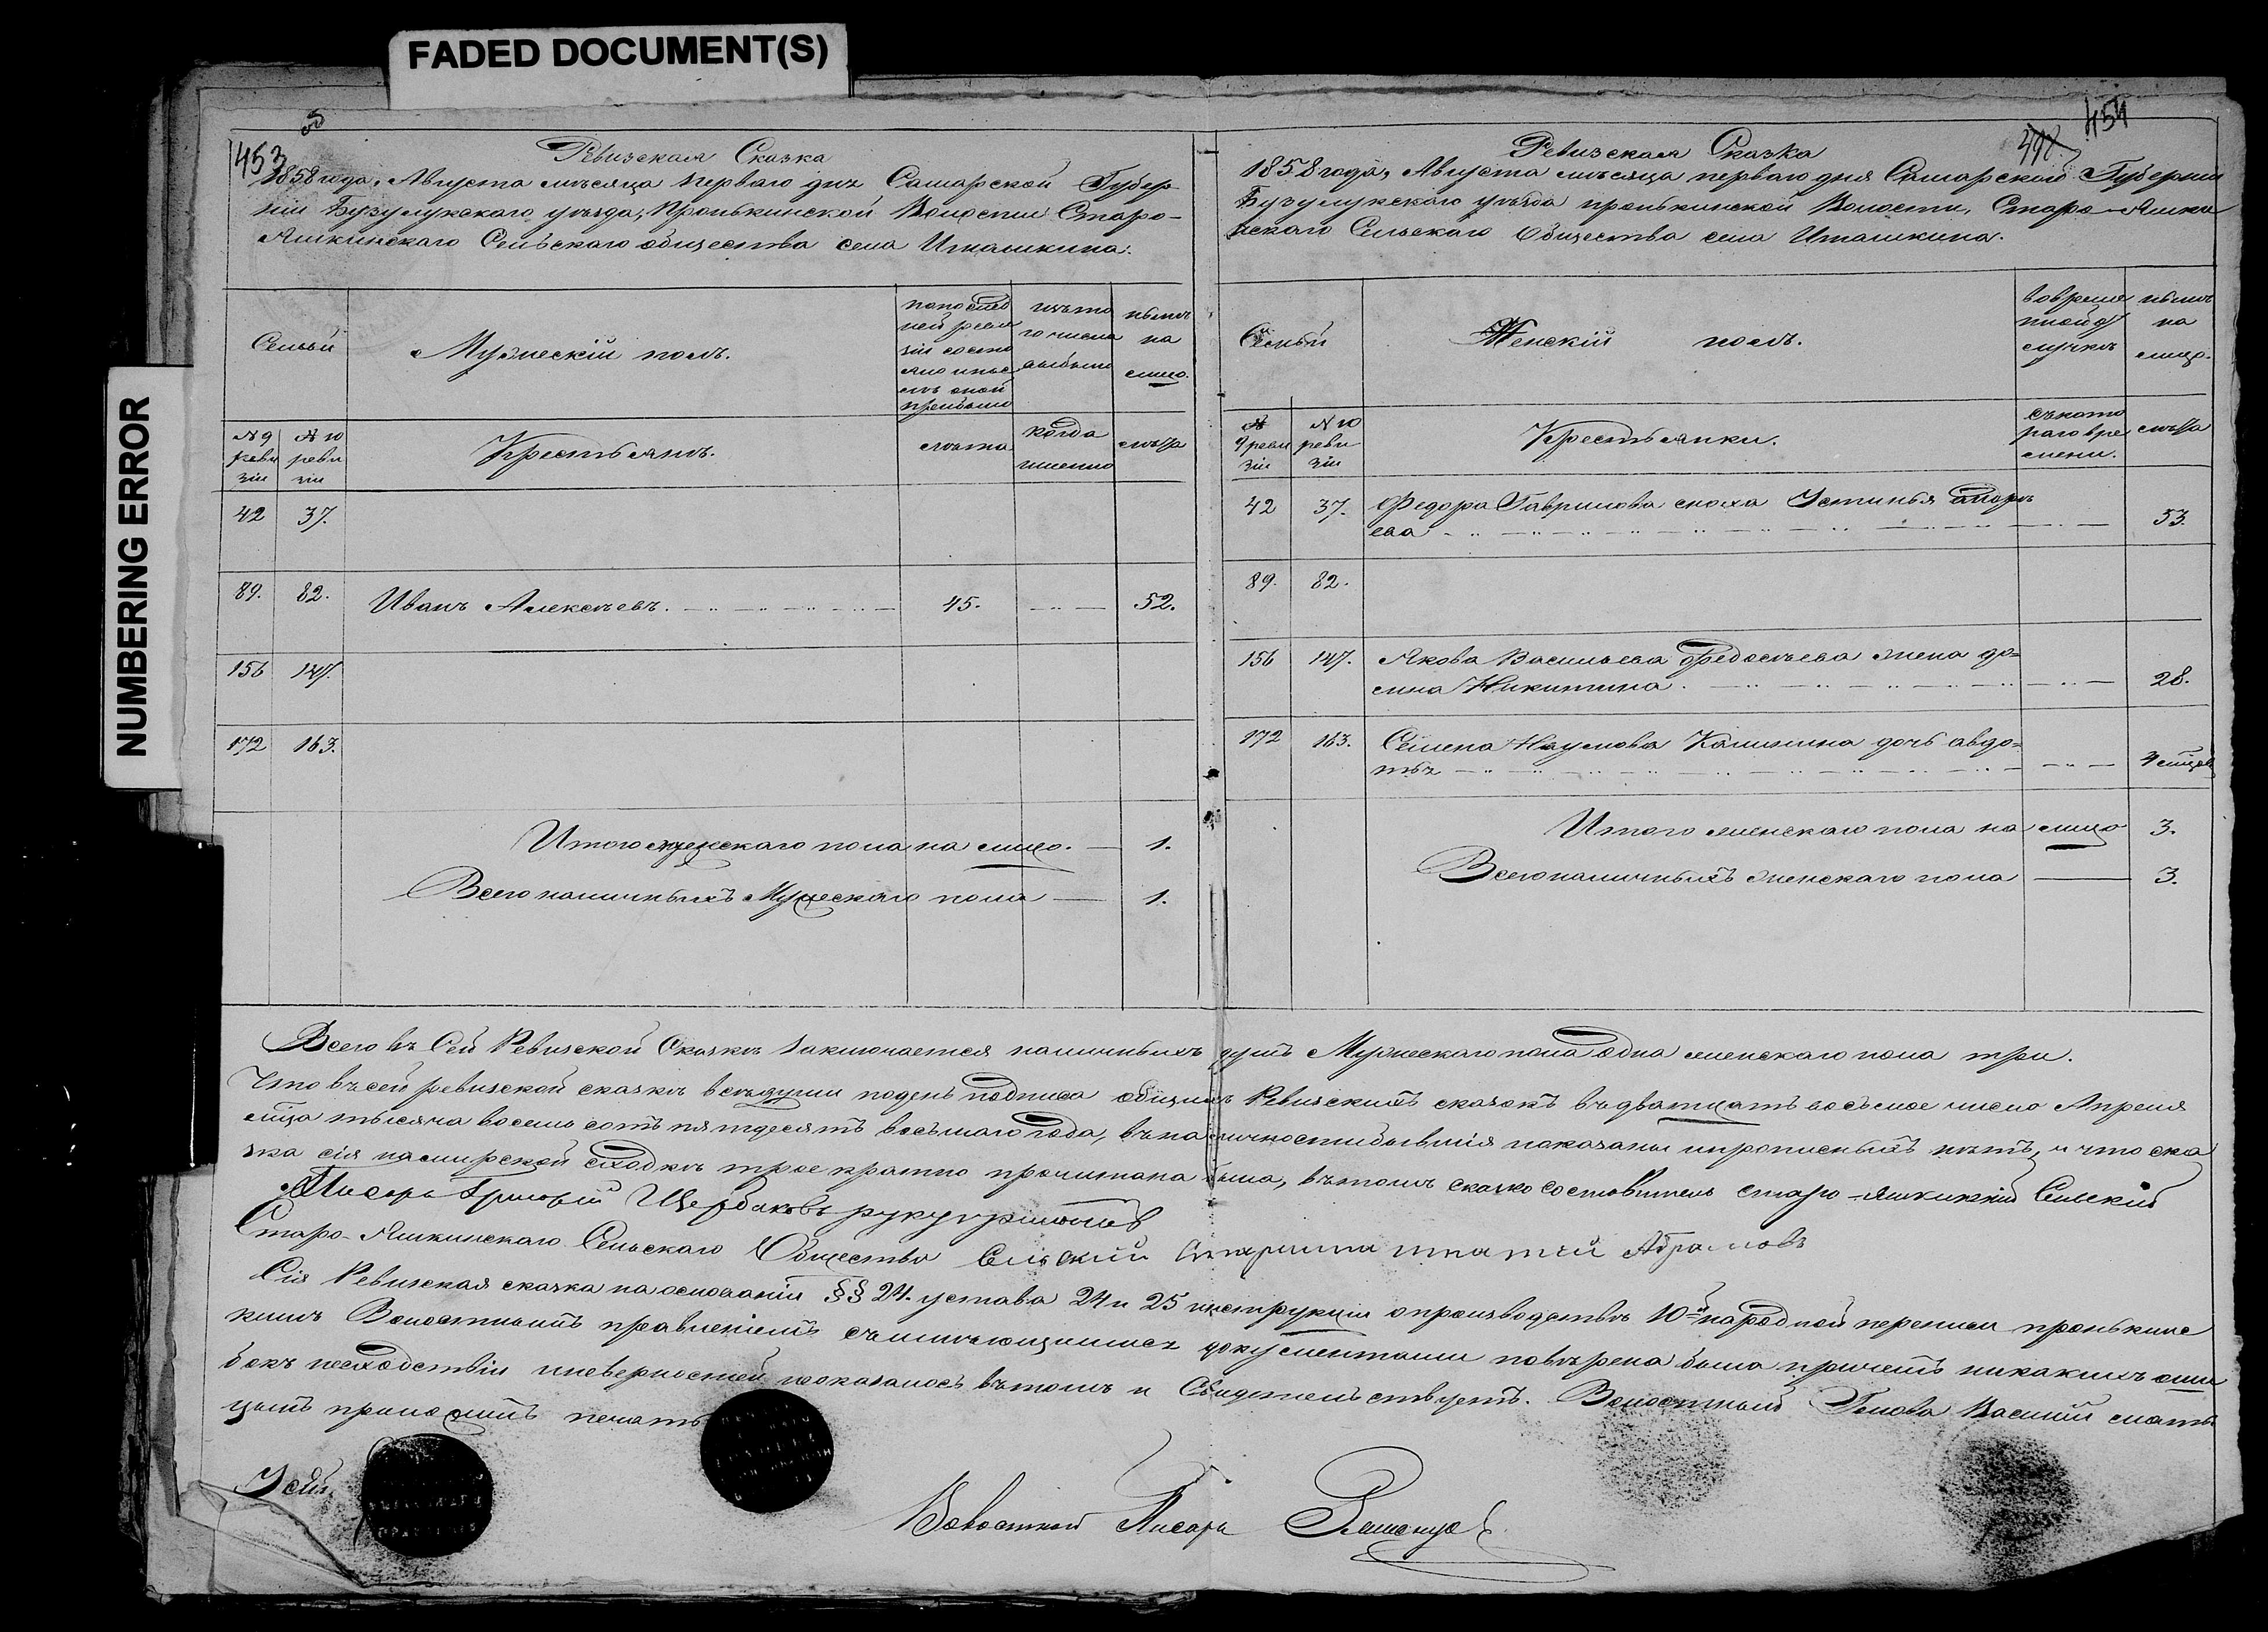 FADED DOCUMENT(S)
NUMBERING ERROR
453
Ревизская Сказка
1858 года, Августа мѣсяца перваго дня Самарской Губер
ніи Бузулукскаго уѣзда, Пронькинской Волости Старо-
Яшкинскаго Сельскаго общества села Иташкина.
Семьи
Мужескій полъ.
по послѣд
ней реви
зіи состо
яло и пос
лѣ оной
прибыло
изъ то
го числа
выбыло
нынѣ
на
лицо.
№ 9
реви
зіи
№ 10
реви
зіи
Крестьянъ.
лѣта
когда
именно
лѣта
42 37.
89. 82. Иванъ Алексѣевъ. 45. 52.
156 147.
172 163.
Итого мужескаго пола на лицо. — 1.
Всего наличныхъ Мужескаго пола — 1.
454
Ревизская Сказка
1858 года, Августа мѣсяца перваго дня Самарской Губерніи
Бузулукскаго уѣзда пронькинской Волости, Старо-Яшки
нскаго Сельскаго Общества села Иташкина.
Семьи
Женскій полъ.
во време
нной от
лучкѣ
нынѣ
на
лицо.
№
9 реви
зіи
№ 10
реви
зіи
Крестьянки.
съ кото
раго вре
мени.
лѣта
42 37. Федора Гаврилова сноха Устинья
ева 53.
89. 82.
156 147. Якова Васильева Федосѣева жена до=
мна Никитина. 28.
172 163. Семена Наумова Калинина дочь авдо=
тья 4
Итого женскаго пола на лицо 3.
Всего наличныхъ женскаго пола — 3.
Всего въ Сей Ревизской Сказкѣ заключается наличныхъ душъ Мужескаго пола одна женскаго пола три.
Что въ сей ревизской сказкѣ всѣ души по день подписа общихъ Ревизскихъ сказокъ въ двадцать восьмое число Апреля
мѣца тысяча восемь сотъ пятдесятъ восьмаго года, въ наличности бывшія показаны и прописныхъ нѣтъ, и что ска
зка сія на мирской сходкѣ трое кратно прочитана была, въ томъ сказко составитель старо-яшкинкій Сельскій
Писарь Григорій Щербаковъ руку приложилъ
Старо-Яшкинскаго Сельскаго Общества Сельский Старшина Абрамовъ
Сія Ревизская сказка на основаніи §§ 24. устава 24 и 25 инструкціи о производствѣ 10й народной переписи пронькинс
кимъ Волостнымъ правленіемъ съ имѣющимися документами повѣрена была причемъ никакихъ оши
бокъ несходствіи и неверностей не оказалось въ томъ и Свидетельствуетъ. Волостный Голова Василій
печать
Волостной Писарь